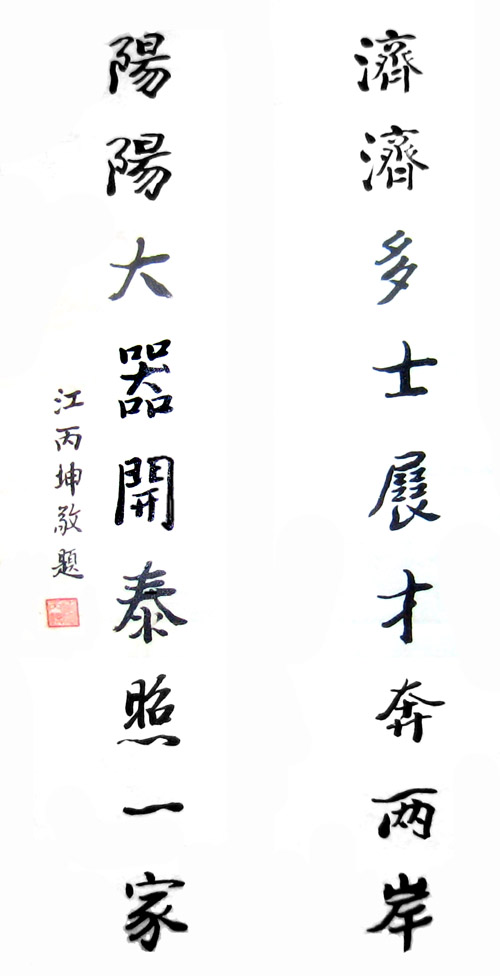 濟濟多士展才奔兩岸
陽陽大器開泰照一家
江丙坤敬題